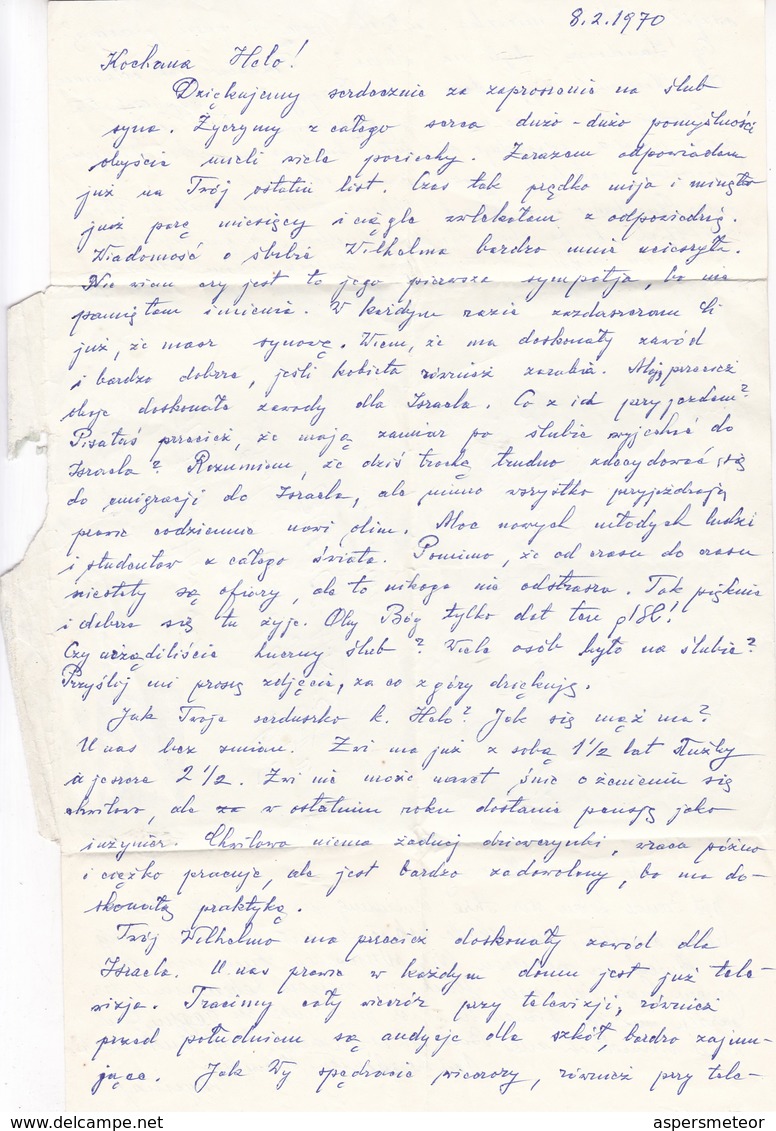 8.2.1970
Kochana Helo!
Dziękujemy serdecznie za zaproszenie na ślub
syna. Życzymy z całego serca dużo-dużo pomyślności
obyście mieli wiele pociechy. Zarazem odpowiadam
już na Twój ostatni list. Czas tak prędko mija i minęło
już parę miesięcy i ciągle zwlekałam z odpowiedzią.
Wiadomość o ślubie Wilhelma bardzo mnie ucieszyła.
Nie wiem czy jest to jego pierwsza sympatja, bo nie
pamiętam imienia. W każdym razie zazdaszczam Ci
już, że masz synową. Wiem, że ma doskonały zawód
i bardzo dobrze, jeśli kobieta również zarabia. Mają przecież
oboje doskonałe zawody dla Israela. Co z ich przyjazdem?
Pisałaś przecież, że mają zamiar po ślubie wyjechać do
Israela? Rozumiem, że dziś trochę trudno zdecydować się
do emigracji do Israela, ale mimo wszystko przyjeżdżają
prawie codziennie nowi olim. Moc nowych młodych ludzi
i studentów z całego świata. Pomimo, że od czasu do czasu
niestety są ofiary, ale to nikogo nie odstrasza. Tak pięknie
i dobrze się tu żyje. Oby Bóg tylko dał ten
Czy urządziliście huczny ślub? Wiele osób było na ślubie?
Przyślij mi proszę zdjęcia, za co z góry dziękuję.
Jak Twoje serduszko k. Helo? Jak się mąż ma?
U nas bez zmian. Zwi ma już z sobą 1½ lat służby
a jeszcze 2½. Zwi nie może nawet śnić o żenieniu się
chwilowo, ale za w ostatnim roku dostanie pensję jako
inżynier. Chwilowo niema żadnej dziewczynki, wraca późno
i ciężko pracuje, ale jest bardzo zadowolony, bo ma do-
skonałą praktykę.
Twój Wilhelm ma przecież doskonały zawód dla
Israela. U nas prawie w każdym domu jest już tele-
wizja. Tracimy cały wieczór przy telewizji, również
przed południem są audycje dla szkół, bardzo zajmu-
jące. Jak Wy spędzacie wieczory, również przy tele-
aspersmeteor